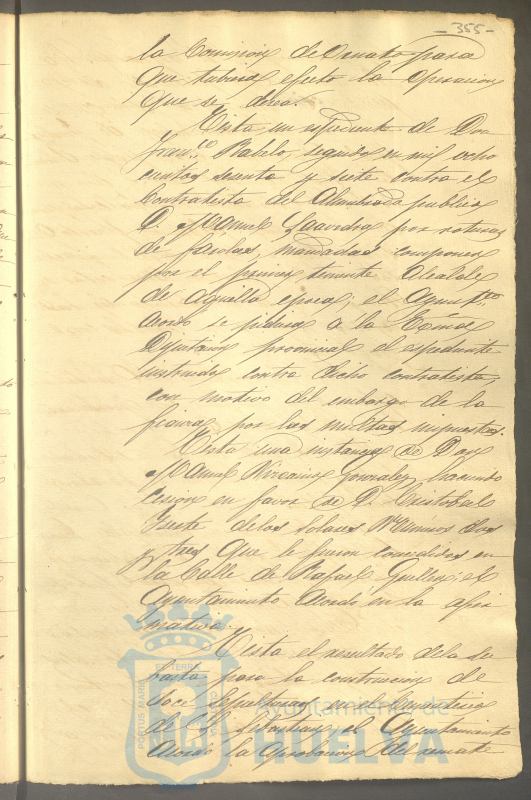 - 355 -
la Comision de Ornato para
que tubiera efecto la operacion
que se desea.
Vista un espediente de Don
Fran.co Rabelo, seguido en mil ocho
cientos sesenta y siete contra el
Contratista del Alumbrado publico
D. Manuel Saavedra por roturas
de farolas, mandadas componer
por el primer teniente Alcalde
de aquella epoca; el Ayunt.to
acordó se pidiera a la Ecsma.
Diputacion provincial el espediente
instruido contra dicho contratista,
con motivo del embargo de la
fianza por las multas impuestas.
Vista una instancia de Don
Manuel Vizcaino Gonzalez, haciendo
cesion en favor de D. Cristobal
Fuerte de los Solares Numeros dos
y tres que le fueron concedidos en
la Calle de Rafael Guillen; el
Ayuntamiento acordó en la afir
mativa.
Vista el resultado de la su
basta para la construccion de
doce sepulturas en el Cementerio
de el Ayuntamiento
acordó la aprobacion del remate
Ayuntamiento de
HUELVA
PORTUS MARIS
ET TERRAE
CUSTODIA